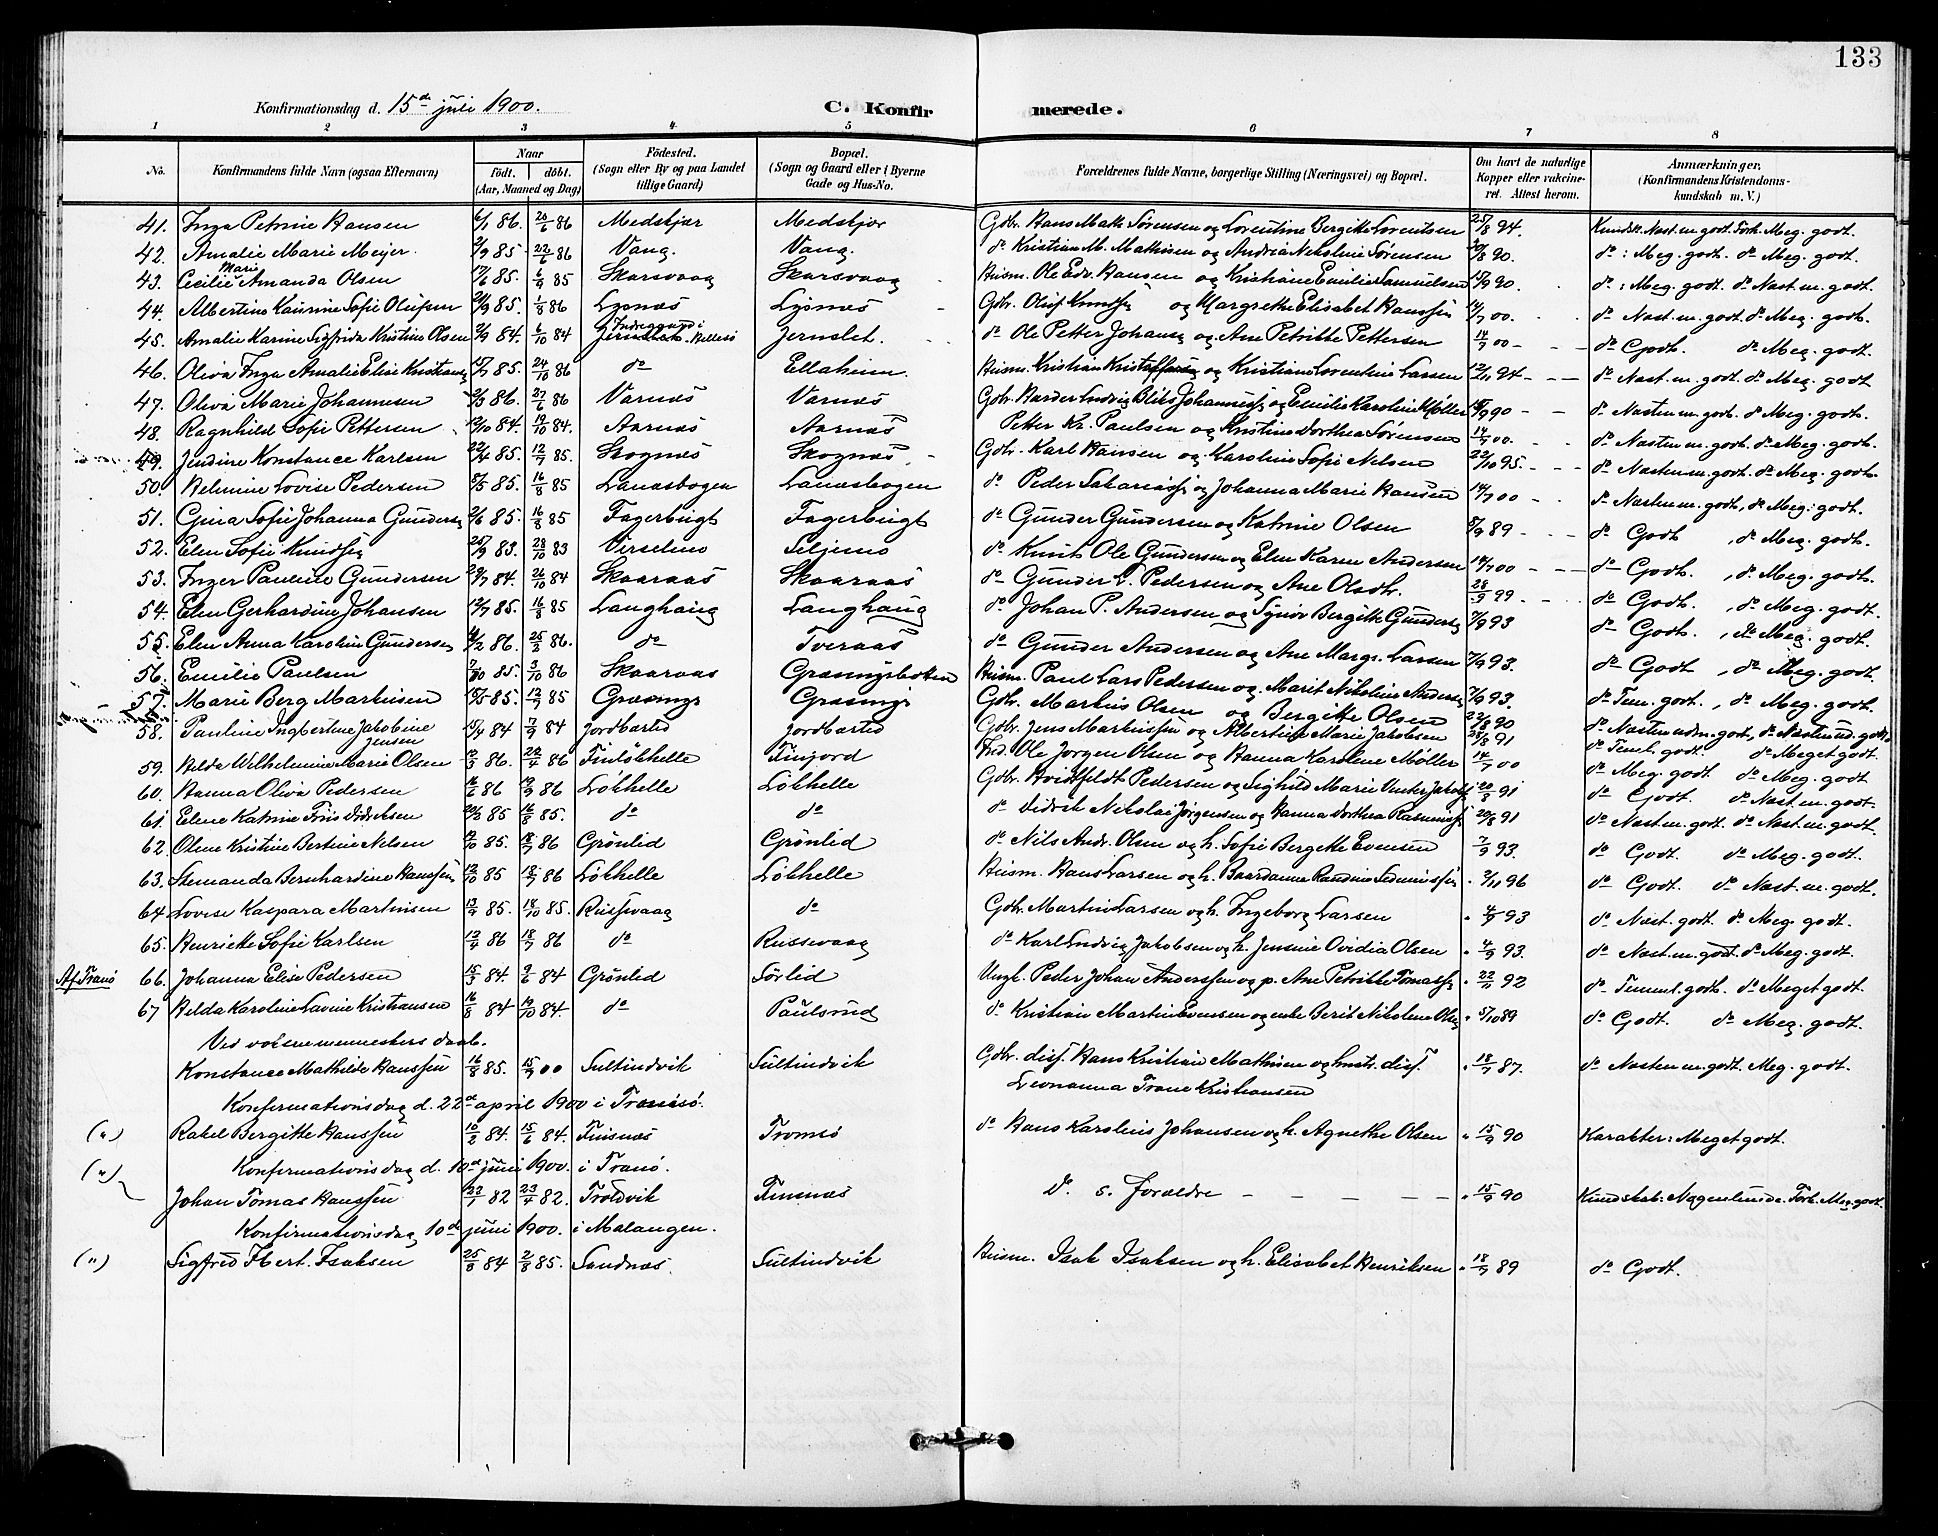 133
Konfirmationsdag d. 15de juli 1900. C. Konfirmerede.
1 2 3 4 5 6 7 8
No. Konfirmandens fulde Navn (ogsaa Efternavn) Naar Født. døbt. (Aar, Maaned og Dag) Fødested. (Sogn eller By og paa Landet tillige Gaard) Bopæl. (Sogn og Gaard eller i Byerne Gade og Hus-No. Forældrenes fulde Navne, borgerlige Stilling (Næringsvei) og Bopæl. Om havt de naturlige Kopper eller vakcineret. Attest herom. Anmærkninger. (Konfirmandens Kristendomskundskab m. V.)
41. Inga Petrine Hansen 6/1 86. 20/6 86 Medskjær Medskjær Gbr. Hans Math. Sørensen og Lorentine Bergitte Lorentsen 25/8 94. Kundsk. Nast. m. godt. Forh. Meg. godt.
42. Amalie Marie Meijer 2/9 85 22/6 86 Vang. Vang. do Kristian M. Mathisen og Andrea Nikoline Sørensen 20/8 90. do: Meg. godt. do Meg. godt.
43. Cecilie Marie Amanda Olsen 17/6 85. 6/9 85 Skarsvaag Skarsvaag Husm. Ole Edv. Hansen og Kristiane Emilie Samuelsen 15/9 90. do: Meg. godt. do Nast. m. godt.
44. Albertine Laurine Sofie Olufsen 24/9 85. 1/8 86 Lysnæs Lysnæs Gbr. Oluf Knudsen og Margrethe Elisabet Hanssen 14/7 00. do Nast. m. godt. do Meg. godt.
45. Amalie Karine Sigfrida Kristine Olsen 2/9 84. 6/10 84 Jernslet. do Ole Petter Johansen og Ane Petrikke Pettersen 14/7 00 do Godt. do Meg. godt.
46. Oliva Inga Amalie Elise Kristiansen 15/7 85. 24/10 86 do Ellaheim. Husm. Kristian Kristoffersen og Kristiane Lorentine Larsen 12/11 94 do Nast. m. godt. do Meg. godt
47. Oliva Marie Johannesen 2/3 86. 27/6 86 Varnæs Varnæs Gbr. Harder Ludvig Bliks Johannessen og Emilie Karoline Møller 15/9 90 do Nasten m. godt. do Meg. godt.
48. Ragnhild Sofie Pettersen 12/10 84. 19/10 84. Aarnæs Aarnæs Petter Kr. Paulsen og Kristine Dorthea Sørensen 14/7 00. do Nasten m. godt. do Meg. godt.
49. Jendine Konstance Karlsen 22/4 85. 12/7 85. Skognæs Skognæs Gbr. Karl Hansen og Karoline Sofie Nelsen 22/10 95. do Nasten m. godt. do Meg. godt.
50. Helmine Lovise Pedersen 5/5 85. 16/8 85 Landsbogen Landsbogen do Peder Sakariassen og Johanna Marie Hansen 14/7 00 do Nasten m. godt, do Meg. godt.
51. Gina Sofie Johanna Gundersen 2/6 85. 16/8 85 Fagerbugt Fagerbugt do Gunder Gundersen og Katrine Olsen 8/9 89 do Godt, do Meg. godt.
52. Elen Sofie Knudsen 25/9 83. 28/10 83 Virselmo Seljemo do Knut Ole Gundersen og Elen Karen Andersen 14/7 00 do Godt. , do Meg. godt.
53. Inger Pauline Gundersen 29/7 84. 26/10 84 Skaaraas Skaaraas do Gunder E. Pedersen og Ane Olsdtr. 28/9 99 do Godt. , do Meg. godt.
54. Elen Gerhardine Johansen 12/7 85. 16/8 85 Langhaug Langhaug do Johan P. Andersen og Synøv Bergitte Gundersen 7/9 93 do Godt. , do Meg. godt.
55. Elen Anna Karoline Gundersen 4/2 86. 25/2 86. do Tveraas do Gunder Andersen og Ane Margr. Larsen 7/9 93. do Godt , do Meg. godt.
56. Emilie Paulsen 7/10 85. 3/10 86 Skaaraas Græsmyrbotten Husm. Paul Lars Pedersen og Marit Nikoline Andersen 7/9 93. do Tem. godt. , do Meg. godt.
57. Marie Berg Markusen 15/5 85. 12/7 85 Græsmyr Græsmyr Gbr. Markus Olsen og Bergitte Olsen 22/8 90 do Nasten udm. godt, do Nasten ud. godt
58. Pauline Ingbertine Jakobine Jensen 15/4 84 7/9 84 Jordbærsted Jordbærsted Gbr. Jens Markussen og Albertine Marie Jakobsen 28/8 91 do Teml. godt. do Meget godt.
59. Hilda Wilhelmine Marie Olsen 12/3 86. 22/4 86 Finlökhelle Finjord Ind. Ole Jørgen Olsen og Hanna Karolene Møller 14/7 00 do Meg. godt do Meg. godt.
60. Hanna Oliva Pedersen 16/6 86 19/9 86 Lökhelle Lökhelle Gbr. Hvidtfeldt Pedersen og Sighild Marie Vinter Jakobs 20/8 91 do Godt. do Nast. m. godt.
61. Elene Katrine Friis Didriksen 20/3 85 16/8 85. do do do Didrik Nikolai Jørgensen og Hanna Dorthea Rasmussen 20/8 91 do Nast. m. godt. do Nast. m. godt.
62. Oline Kristine Bertine Nelsen 12/10 85. 18/7 86 Grönlid Grönlid do Nils Andr. Olsen og h. Sofie Bergette Evensen 7/9 93. do Godt. do Meg. godt.
63. Stemanda Bernhardine Hanssen 12/10 85 18/7 86 Lökhelle Lökhelle Husm. Hans Larsen og h. Baardanna Randine 2/11 96 do Godt. do Nast. m. godt.
64 Lovise Kaspara Martinsen 13/9 85. 18/10 85. Russevaag do Gbr. Martin Larsen og h. Ingeborg Larsen 4/9 93 do Nast. godt. do Meg. godt.
65. Henriette Sofie Karlsen 12/4 86 18/7 86 do Russevaag do Karl Ludvig Jakobsen og h. Jensine Ovidia Olsen 4/9 93. do Nast. m. godt. do Meg. godt.
Af Tranö 66. Johanna Elise Pedersen 15/3 84. 9/6 84 Grönlid Sörlid Ungk. Peder Johan Anderssen og p. Ane Petrikke Tomassen 22/11 92 do Temml. godt. do Meget godt.
67 Hilda Karoline Lavine Kristiansen 16/8 84 19/10 84. do Paulsrud do Kristian Martin Evensen og enke Berit Nikolena Olsen 5/10 89 do Godt. do Meg. godt.
Ved voksne menneskers daab.
Konstance Mathilde Hanssen 16/8 85. 15/7 00 Sultindvik Sultindvik Gbr. diss. Hans Kristian Mathisen og hustr. diss. 18/7 87. do Nasten m. godt. Meg. godt.
Leonanna Trane Kristiansen
Konfirmationsdag d. 22de april 1900 i Tromsö.
(") Rakel Bergitte Hanssen 10/2 84. 15/6 84. Finsnæs Tromsö do Hans Karolius Johansen og h. Agnethe Olsen 15/9 90 Karakter: Meget godt.
(") Konfirmationsdag d. 10de juni 1900. i Tranö.
Johan Tomas Hanssen 22/1 82 23/4 82. Troldvik Finsnæs D. s. forældre 15/9 90 Kundskab: Nogenlunde. Forh. Meg. godt.
Konfirmationsdag 10de juni 1900. i Malangen.
(") Sigfred Hert. Isaksen 25/8 84 2/8 85. Sandnæs Sultindvik Husm. Isak Isaksen og h. Elisabet Henriksen 18/7 89 do Godt.